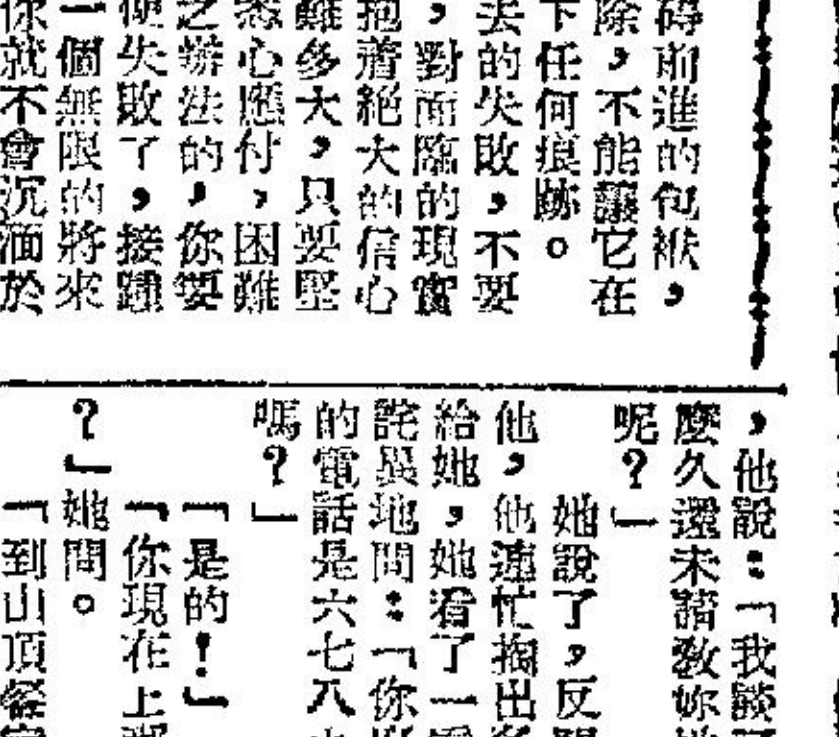 碍前進的包袱，
除，不能讓它在
下任何痕跡。
去的失敗，不要
，對面臨的現實
抱着絕大的信心
難多大，只要堅
悉心應付，困難
之辦法的，你要
便失敗了，接踵
一個無限的將來
你就不會沉湎於
，他說：「我談
麼久還未請教妳
呢？」
她說了，反
他，他連忙掏出
給她，她看了一
詫異地問：「你
的電話是六七八
嗎？」
「是的！」
「你現在上
？」她問。
「到山頂